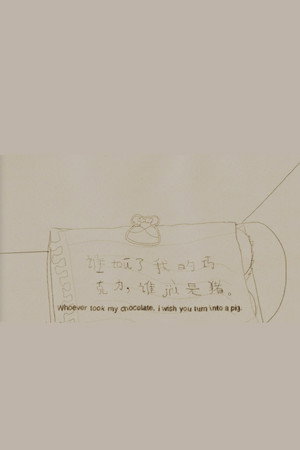 谁拿了我的巧
克力，谁就是猪。
Whoever took my chocolate, i wish you turn into a pig.